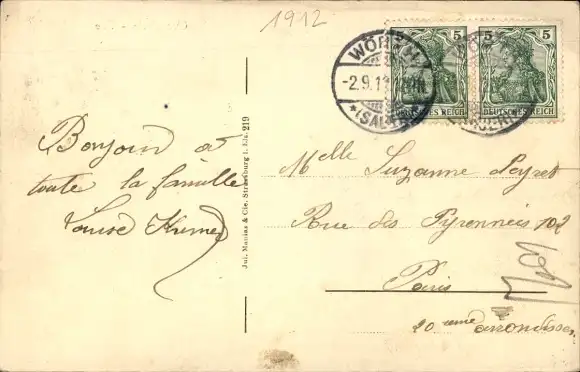 1912
WÖRTH
-2.9.1
*(SAUER
5
DEUTSCHES REICH
5
DEUTSCHES REICH
Bonjour à
toute la famille
Louise
Jul. Manias & Cie. Strassburg i. Els. 219
Melle Suzanne Peyret
Rue des Pyrennées 102
Paris
20 eme arrondisse